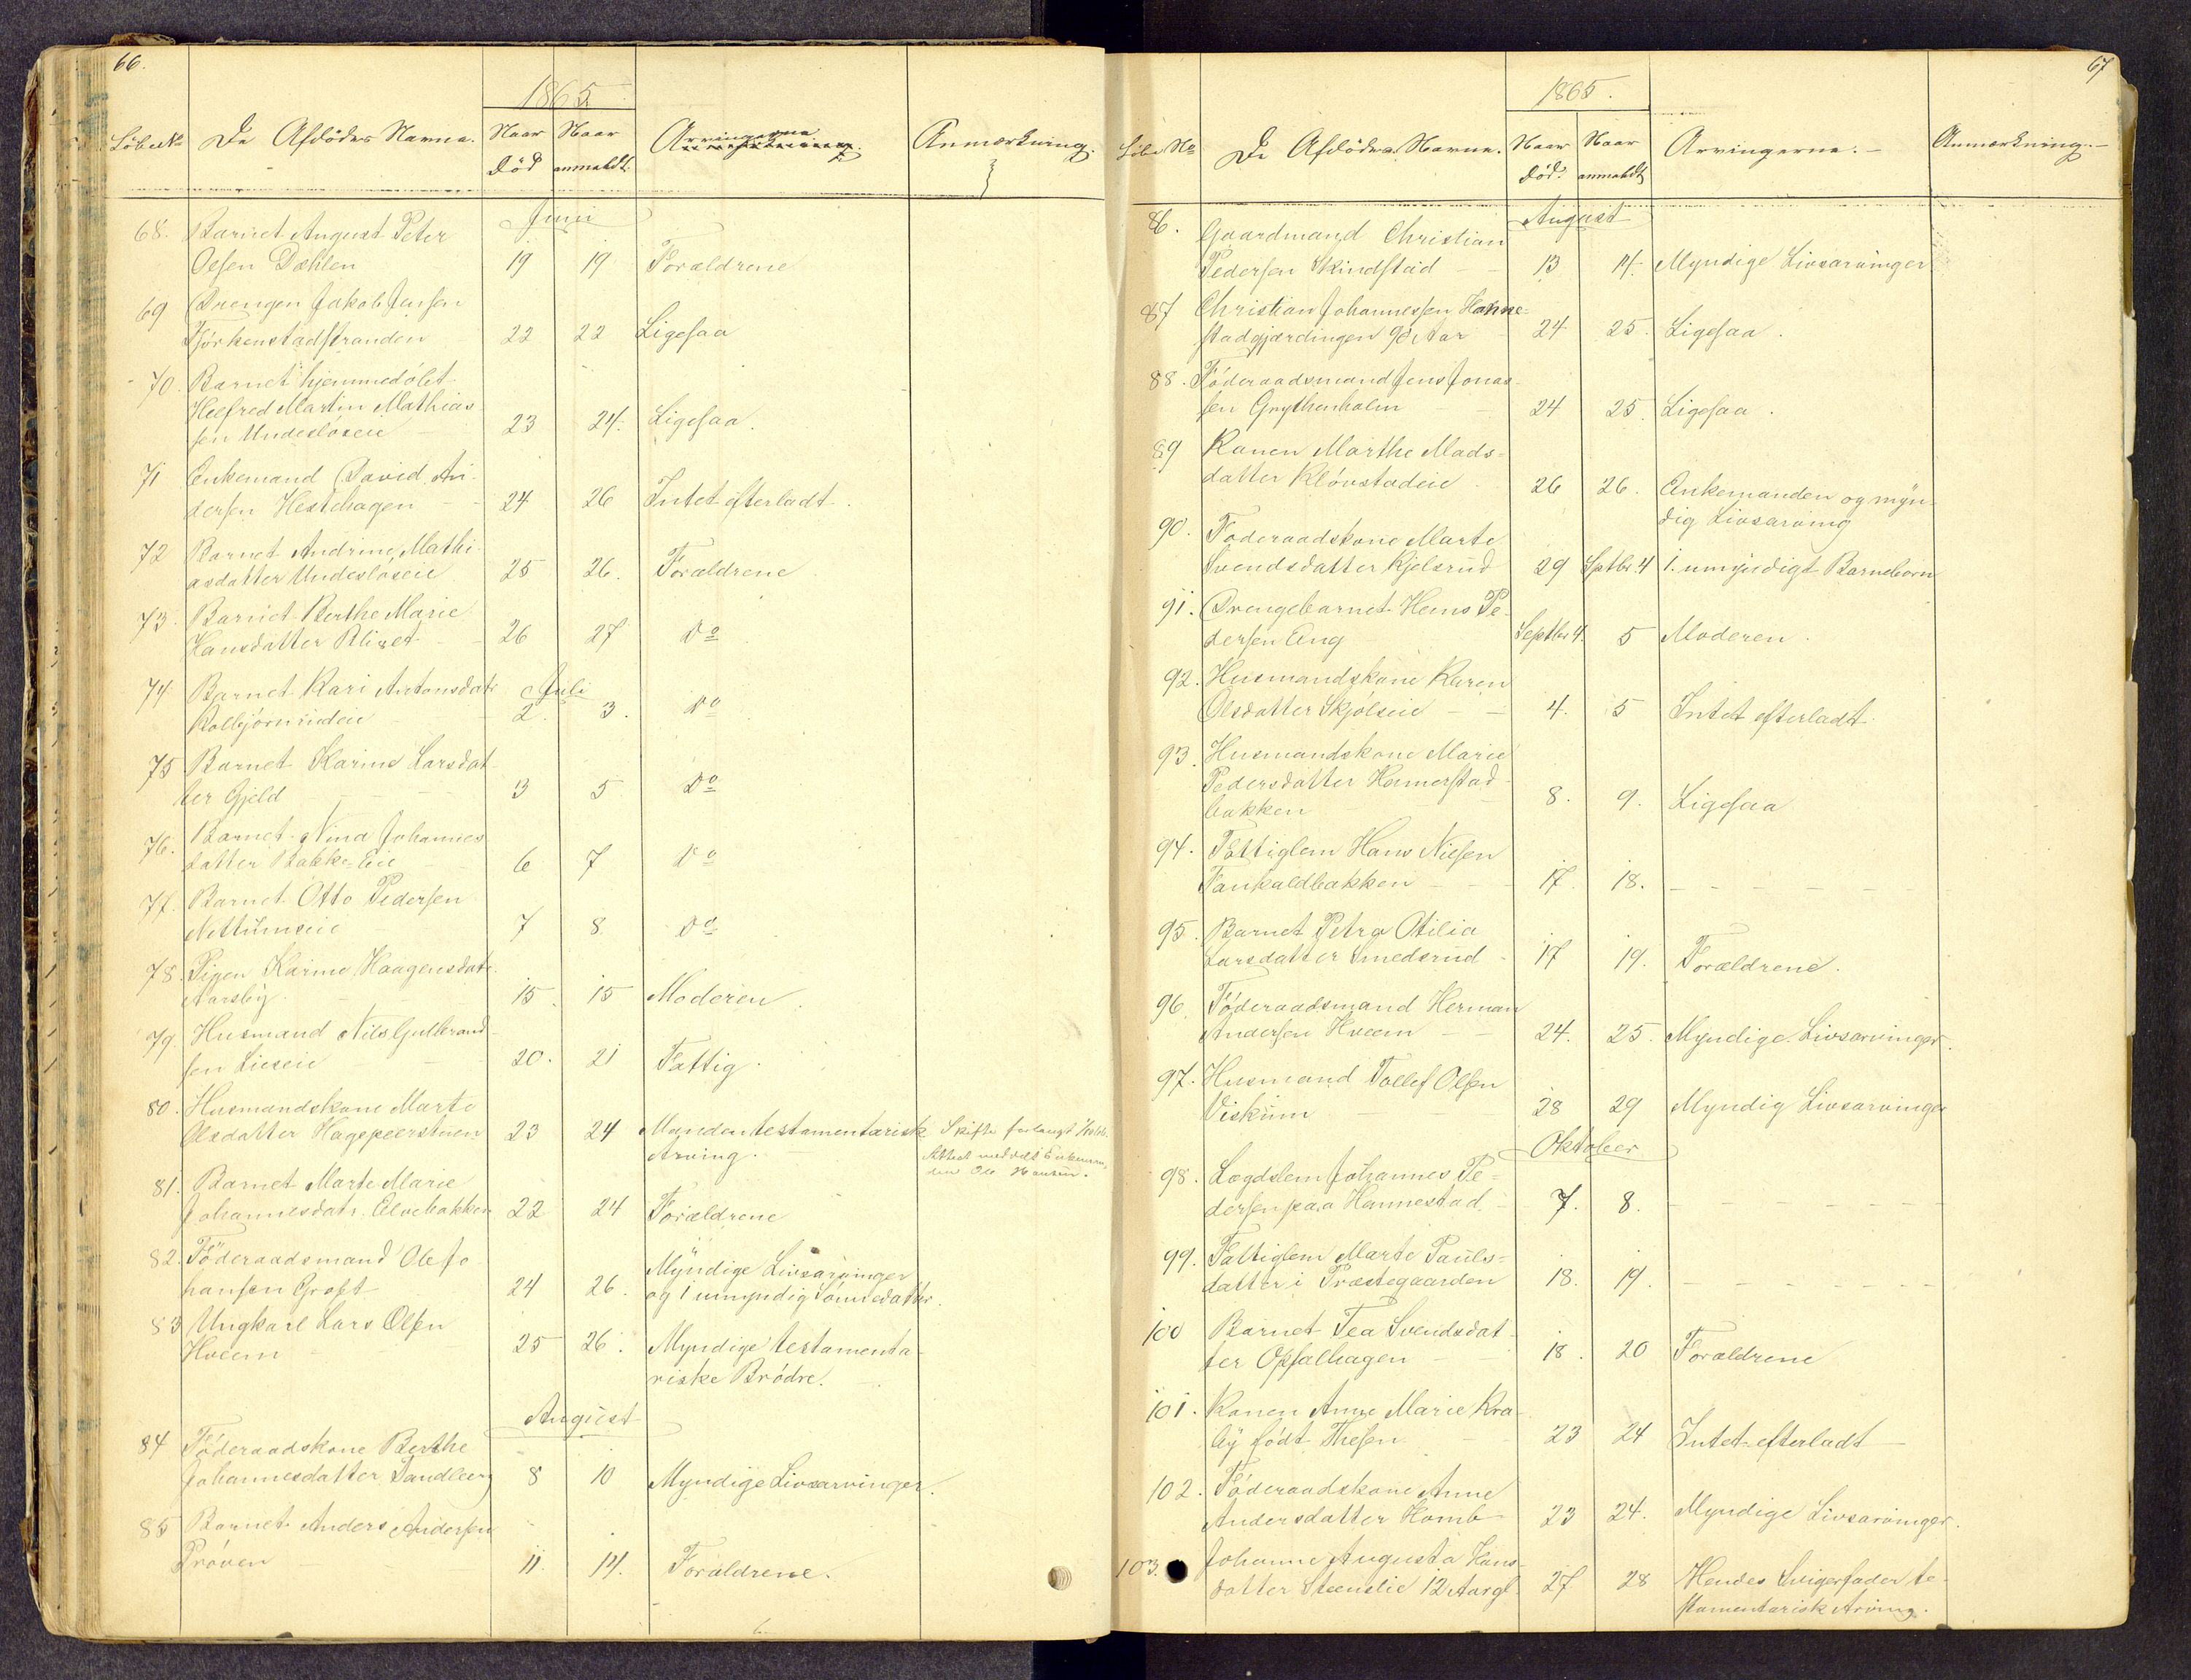 66.
1865
Løbe No De Afdødes Navne. Naar død Naar anmeldt Arvingerne Anmærkning.
Juni
68. Barnet August Peter
Oesen Dæhlen 19 19 Forældrene
69 Drengen Jakob Jensen
Kjørkenstadstranden 22 22 Ligesaa
70. Barnet hjemmedøbt
Helfred Martin Mathias-
sen Undesløseie 23 24. Ligesaa.
71 Enkemand David An-
dersen Hestehagen 24 26 Intet efterladt.
72 Barnet Andrine Mathi-
asdatter Undesløseie 25 26. Forældrene
73. Barnet Berthe Marie
Hansdatter Blixet 26 27 Do
74 Barnet Kari Antonsdatr Juli
Kolbjørnrudeie 2. 3. Do
75 Barnet Karine Larsdat-
ter Gjeld 3 5 Do
76. Barnet Nina Johannes
datter Bakke-Eie 6 7 Do
77. Barnet Otto Pedersen
Nettumseie 7 8. Do
78. Pigen Karine Haagensdatr.
Aarsby. 15. 15 Moderen.
79. Husmand Nils Gulbrand-
sen Lieseie 20. 21 Fattig.
80. Husmandskone Marte
Olsdatter Hagepeerstuen 23 24 Manden testamentarisk Skifte forlangt
Arving. Attest meddelt Enkeman-
den Ole Hansen.
81. Barnet Marte Marie
Johannesdatr. Elvebakken 22 24 Forældrene
82. Föderaadsmand Ole Jo-
hansen Groft 24 26. Myndige Livsarvinger
og 1 umyndig Sønnedatter.
83 Ungkarl Lars Olsen
Hveem 25 26. Myndige testamenta-
riske Brødre.
August
84 Föderaadskone Berthe
Johannesdatter Sandberg 8 10 Myndige Livsarvinger.
85 Barnet Anders Andersen
Prøven 11. 14. Forældrene.
67
1865.
Løbe No De Afdødes Navne. Naar død. Naar anmeldt Arvingerne.- Anmærkning.-
August
86. Gaardmand Christian
Pedersen Skindstad 13 14. Myndige Livsarvinger
87 Christian Johannessen Hanne-
stadgjærdingen 96 Aar 24 25. Ligesaa.
88. Föderaadsmand Jens Jonas-
sen Grythenholm 24 25. Ligesaa.
89 Konen Marthe Mads-
datter Kløvstadeie 26 26. Enkemanden og myn-
dig Livsarving
90. Føderaadskone Marte
Svendsdatter Kjelsrud 29 Sptbr. 4 1. umyndigt Barnebarn
91. Drengebarnet Hans Pe-
dersen Eng Septbr 4. 5 Moderen.
92. Husmandskone Karen
Olsdatter Skjølseie 4. 5 Intet efterladt.
93. Husmandskone Marie
Pedersdatter Hamerstad-
bakken 8. 9. Ligesaa
94. Fattiglem Hans Nielsen
Fankaldbakken 17. 18.
95. Barnet Petra Otilia
Larsdatter Smedsrud 17 19. Forældrene.
96. Føderaadsmand Herman
Andersen Hveem 24. 25. Myndige Livsarvinger.
97. Husmand Tollef Olsen
Viskum 28 29 Myndig Livsarvinger
Oktober
98. Lægdslem Johannes Pe-
dersen paa Hannestad 7. 8.
99. Fattiglem Marte Pauls-
datter i Præstegaarden 18. 19.
100 Barnet Tea Svendsdat-
ter Opsalhagen 18. 20 Forældrene
101. Konen Anne Marie Kra-
by født Thesen 23 24 Intet efterladt
102. Föderaadskone Anne
Andersdatter Homb 23 24. Myndige Livsarvinger.
103. Johanne Augusta Hans-
datter Steenslie 12 Aargl. 27 28 Hendes Svigerfader te-
stamentarisk Arving.